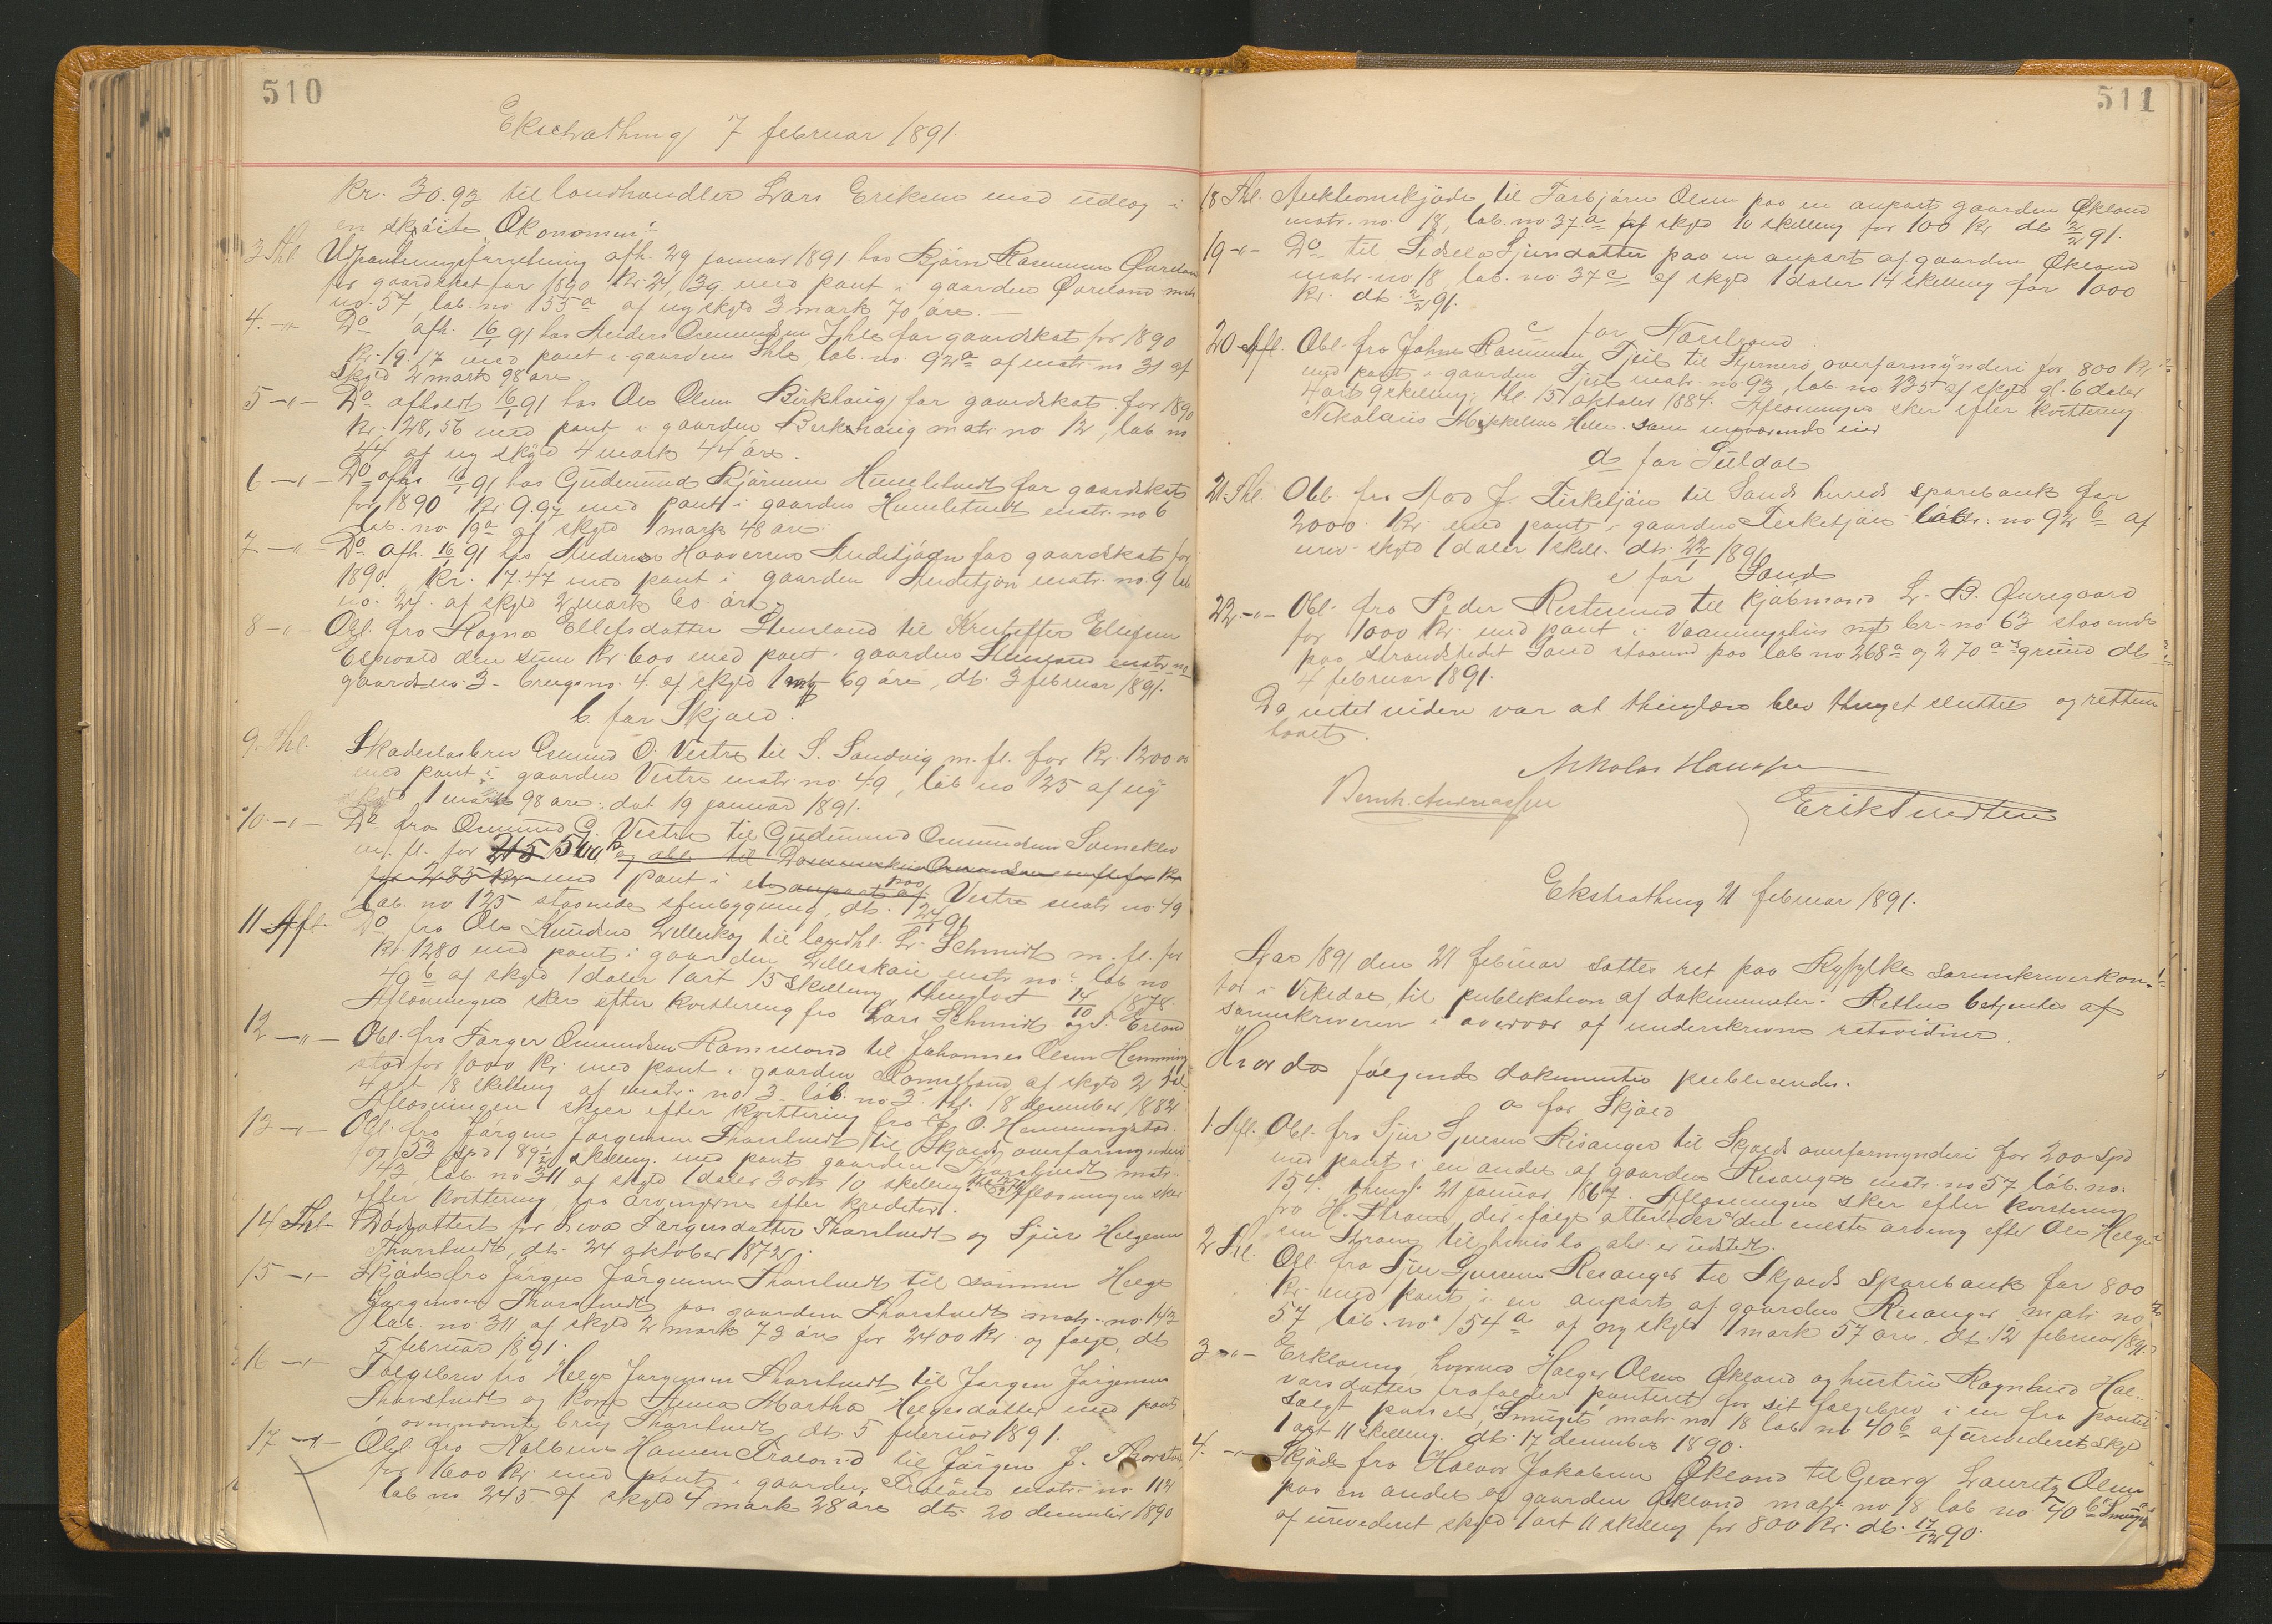 510
Ekstrathing 7 februar 1891.
Kr. 30.93 til landhandler Lars Eriksen med udlæg i
en skøite Økonomen.
3 Thl. Udpantningsforretning afh. 29 januar 1891 hos Bjørn Rasmussen Øvreland
for gaardskat for 1890 Kr. 24,39 med pant i gaarden Øvreland matr.
no. 57 løb. no 155a af ny skyld 3 mark 70 øre.
4. -"- Do afh. 16/1 91 hos Anders Osmundsen Ihle for gaardskat for 1890
Kr. 19.17 med pant i gaarden Ihle løb. no 92a af matr. no 31 af
skyld 2 mark 98 øre
5 -"- Do afholdt 16/1 91 hos Ole Olsen Birkhaug for gaardskat for 1890
Kr. 128,56 med pant i gaarden Berkehaug matr no 12, løb no
44 af ny skyld 4 mark 44 øre.
6 -"- Do afh. 16/1 91 hos Gudmund Bjørnsen Humletvedt for gaardskat
for 1890 Kr 9.97 med pant i gaarden Humletvedt matr. no 6
løb. no 19a af skyld 1 mark 48 øre.
7 -"- Do afh. 16/1 91 hos Anders Haaversen Auestjøn for gaardskat for
1890. Kr. 17.47 med pant i gaarden Auestjøn matr. no. 9 løb
no. 24. af skyld 2 mark 60 øre.
8 -"- Obl. fra Ragna Ellefsdatter Stensland til Kristoffer Ellefsen
Espevold den sum Kr. 600 med pant i gaarden Stensland matr no
gaards-no. 3 - brugs no. 4. af skyld 1 mk 69 øre, dt. 3 februar 1891.
b. for Skjold.
9. Thl. Skadesløsbrev Osmund O. Vestre til S. Sandvig m. fl. for Kr. 1200 00
med pant i gaarden Vestre matr. no. 49, løb no 125 af ny
skyld 1 mark 98 øre. dat 19 januar 1891.
10. -"- Do fra Osmund G. Vestre til Gudmund Osmundsen
m. fl. for 215 500 Kr og obl. til
for 285 Kr med pant i en anpart af paa Vestre matr no. 49
løb. no 125 staaende bygning, dt. 24/1 91
11 Afl. Do fra Ole Knudsen Lilleskog til landhl. L. Schmidt m. fl. for
Kr. 1280 med pant i gaarden Lilleskau matr no. løb no
49b af skyld 1 daler 1 ort 15 skilling thinglæst 14/10 1878.
Afløsningen sker efter kvittering fra Lars Schmidt og
12 -"- Obl. fra Torger Osmundsen Ramsland til Johannes Olsen Hemming
stad for 1000 Kr. med pant i gaarden Ramsland af skyld 2 dal.
4 ort 18 skilling af matr. no 3 løb. no 3. thl. 18 desember 1882
Afløsningen skjer efter kvittering fra J. O. Hemmingstad.
13 -"- Obl. fra Jørgen Jørgensen Thorstvedt til Skjold overformynderi
for 53 spd 89 1/2 skilling. med pant gaarden Thorstvedt matr.
143, løb. no 311 af skyld 1 daler 3 ort 10 skilling. Afløsningen sker
efter kvittering fra arvingerne efter kreditor.
14 Thl. Dødsattest for Siva Torgersdatter Thorstvedt og Sjur Helgesen
Thorstvedt, dt. 24 oktober 1872.
15 -"- Skjøde fra Jørgen Jørgensen Thorstvedt til sønnen Helge
Jørgensen Thorstvedt paa gaarden Thorstvedt matr. no. 143
løb. no 311 af skyld 2 mark 73 øre for 2400 Kr. og følge, dt
5 februar 1891.
16 -"- Følgebrev fra Helge Jørgensen Thorstvedt til Jørgen Jørgensen
Thorstvedt og kone Anna Martha Helgesdatter med pant
i ovennævnte brug Thorstvedt, dt. 5 februar 1891.
17 -"- Obl. fra Halben Hansen Froland til Jørgen J. Thorstvedt
for 1600 Kr. med pant i gaarden Froland matr. no 112
løb no 245 af skyld 4 mark 28 øre dt. 20 december 1890
511
18 Thl. Auktionsskjøde til Torbjørn Olsen paa en anpart gaarden Økland
matr. no. 18, løb. no. 37a af skyld 10 skilling for 100 Kr. dt 2/2 91.
19 -"- Do til Sidsela Sjursdatter paa en anpart af gaarden Økland
matr. no 18, løb. no 37c af skyld 1 daler 14 skilling for 1000
Kr. dt. 2/2 91.
c for Narstrand.
20 Afl. Obl. fra Johan Rasmussen Tjeil til Hjermers overformynderi for 800 Kr.
med pant i gaarden Tjeil matr. no. 93, løb. no. 335 af skyld gl. 6 daler
4 ort 9 skilling, thl. 15 oktober 1884. Afløsningen sker efter kvittering
Nikolaus Mikkelsen Helle. som nuværende eier
d for Suldal
21. Thl. Obl. fra Aad J. Fiskekjøn til Sands herreds sparebank for
2000 Kr. med pant i gaarden Fiskekjøn løbr. no 92b af
urev. skyld 1 daler 1 skill. dt. 22/1 1891
e for Sand
22. -"- Obl. fra Peder Restesund til kjøbmand L. B. Qvregaard
for 1000 Kr. med pant i Vaaningshus mt br. no 63 staaende
paa strandstedet Sand staaend paa løb no 268a og 270a's grund dt
4 februar 1891.
Da intet videre var at thinglæse blev thinget sluttet og retten
hævet.
Nikolas Hansen
Bernh. Andreassen
Erik Tvedten
Ekstrathing 21 februar 1891.
Aar 1891 den 21 februar sattes ret paa Ryfylke sorenskriverkon-
tor i Vikedal til publikation af dokumenter. Retten betjentes af
sorenskriveren i overvær af underskrevne retsvidner.
Hvorda følgende dokumenter publicerede.
a for Skjold
1. Afl. Obl. fra Sjur Sjursen Risanger til Skjolds overformynderi for 200 Spd
med pant i en andel af gaarden Risanger matr. no 57 løb. no.
154. thingl. 21 januar 1867. Afløsningen sker efter kvittering
fra H. Straum, der ifølge attest der er den eneste arving efter Ole Helge
sen Straum til hvem la obl. er udstedt.
2 Thl. Obl. fra Sjur Sjursen Risanger til Skjolds Sparebank for 800
Kr. med pant i en anpart af gaarden Risanger matr. no
57 løb. no 154a af ny skyld 1 mark 57 øre, dt. 12 februar 1891.
3 -"- Erklæring hvorved Holger Olsen Økland og hustru Ragnhild Hal-
vorsdatter frafalder panteret for sit følgebrev i en fra pantet
solgt parsel, Smuget matr. no 18 løb no 40b af urevideret skyld
1 ort 11 skilling. dt. 17 december 1890.
4. -"- Skjøde fra Halvor Jakobsen Økland til Georg Lauritz Olsen
paa en andel af gaarden Økland matr. no 18 løb no 40b "Smuget"
af urevideret skyld 1 ort 11 skilling for 800 Kr. dt. 17/12 90.